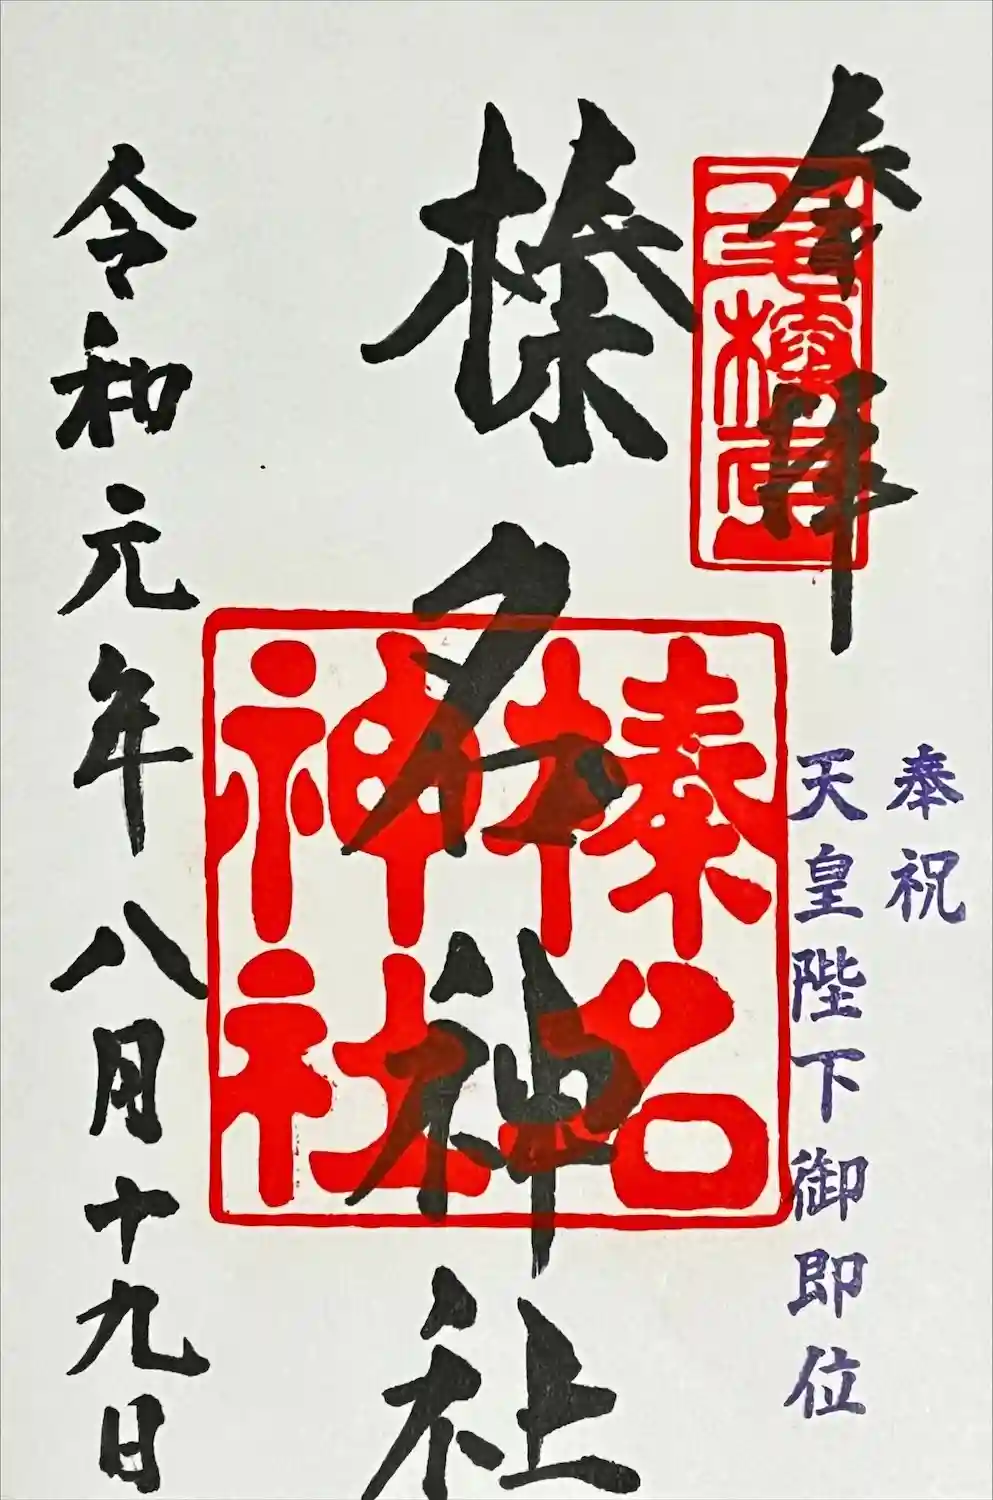 奉拝
奉祝
天皇陛下御即位
榛名神社
榛名
神社
令和元年八月十九日